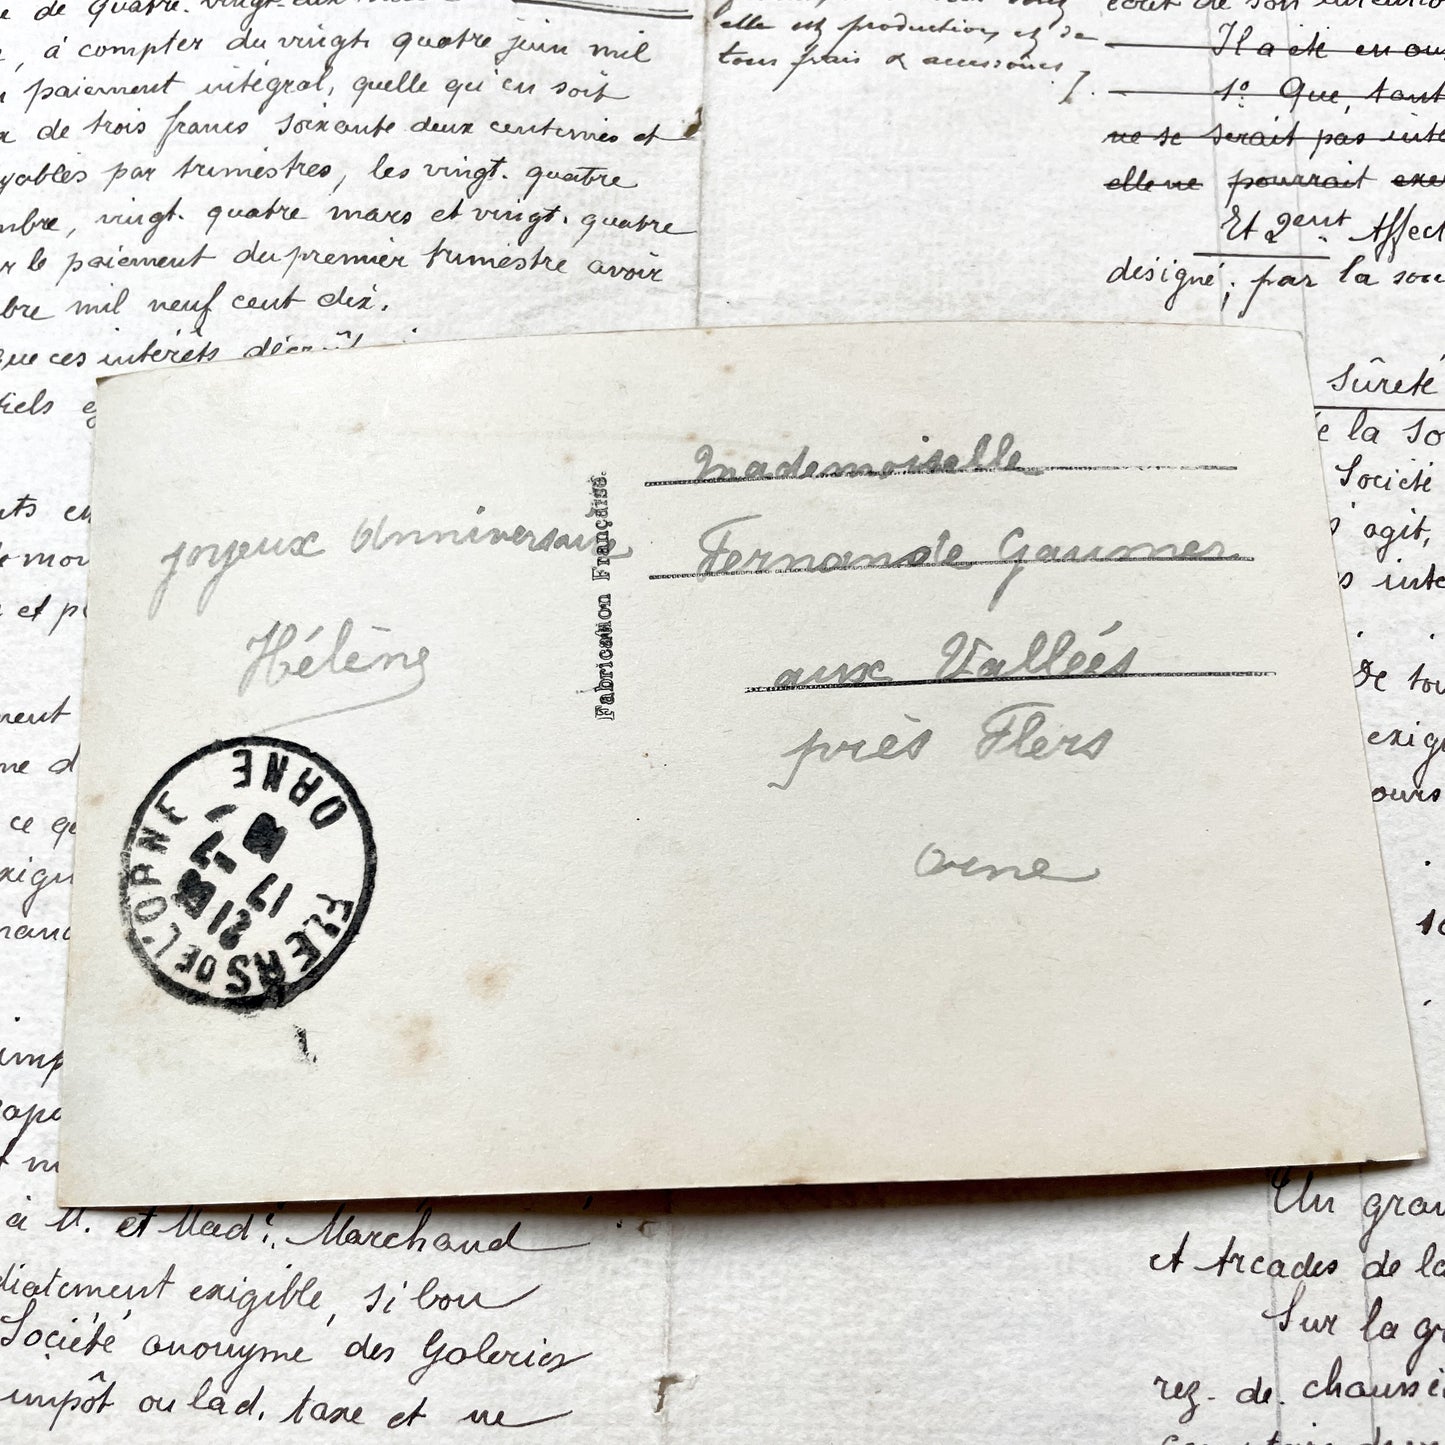 à compter du vingt quatre juin mil
paiement intégral, quelle qu'en soit
de trois francs soixante deux centimes et
par trimestres, les vingt. quatre
mbre, vingt. quatre mars et vingt. quatre
r le paiement du premier trimestre avoir
bre mil neuf cent dix.
que ces intérêts
tiels
elle est production, et de
tous frais & accessoires
Il a été
1° Que, tant
ne se serait pas inté
elle ne pourrait exer
Et 2ent Affect
désigné; par la sou
sûreté
e la So
Société
s'agit,
s inte
De tou
exig
ours
Joyeux Anniversaire
Hélène
Fabrication Française.
Mademoiselle
Fernande Gaumer
aux Vallées
près Flers
Orne
FLERS DE L'ORNE
ORNE
17
21
à M. et Mad. Marchand
diatement exigible, si bon
Société anonyme des Galeries
impôt ou lad. taxe et ne
Un gran
et Arcades de la
Sur la gr
rez. de. chaussé